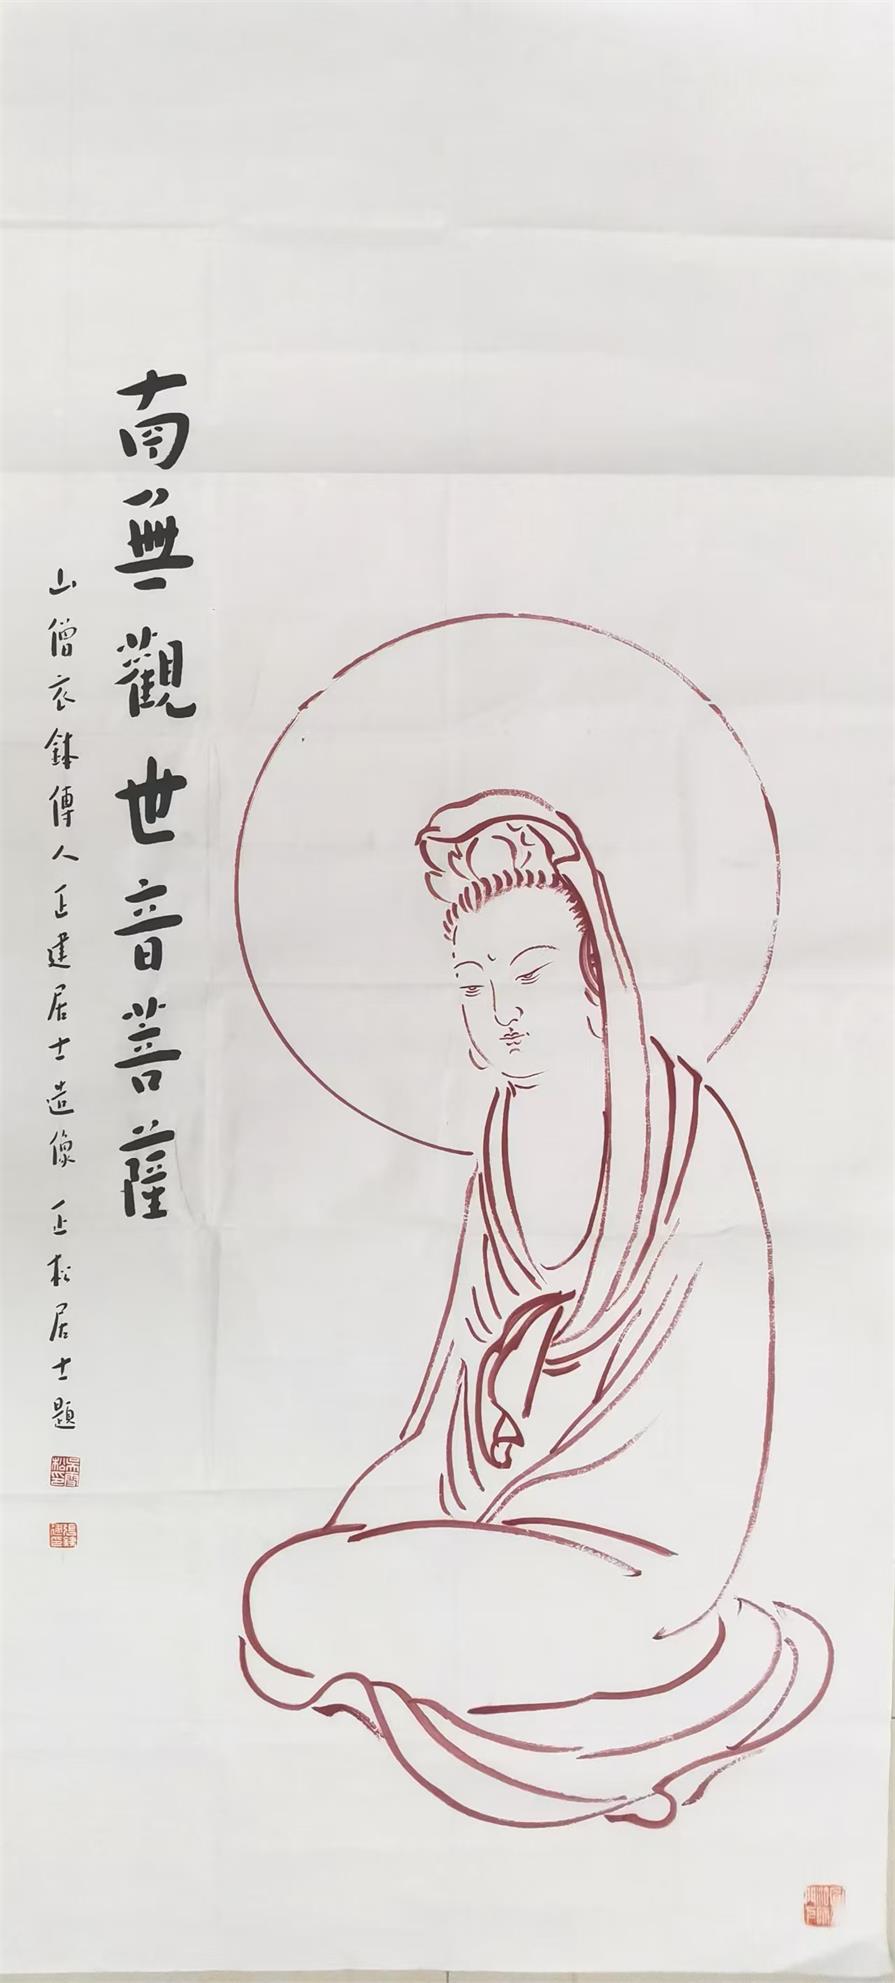 南無觀世音菩薩
山僧衣鉢傳人正建居士造像 正松居士題